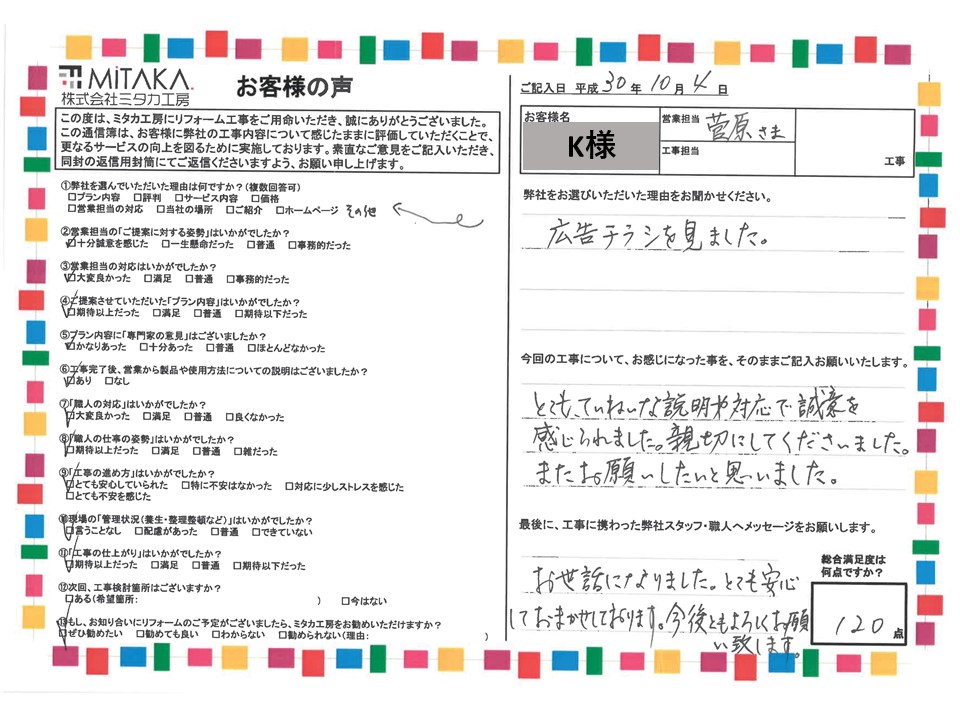 MiTAKA.
株式会社ミタカ工房
お客様の声
この度は、ミタカ工房にリフォーム工事をご用命いただき、誠にありがとうございました。
この通信簿は、お客様に弊社の工事内容について感じたままに評価していただくことで、
更なるサービスの向上を図るために実施しております。素直なご意見をご記入いただき、
同封の返信用封筒にてご返信くださいますよう、お願い申し上げます。
①弊社を選んでいただいた理由は何ですか？(複数回答可)
□プラン内容 □評判 □サービス内容 □価格
□営業担当の対応 □当社の場所 □ご紹介 □ホームページ その他
②営業担当の「ご提案に対する姿勢」はいかがでしたか？
□十分誠意を感じた □一生懸命だった □普通 □事務的だった
③営業担当の対応はいかがでしたか？
□大変良かった □満足 □普通 □事務的だった
④ご提案させていただいた「プラン内容」はいかがでしたか？
□期待以上だった □満足 □普通 □期待以下だった
⑤プラン内容に「専門家の意見」はございましたか？
□かなりあった □十分あった □普通 □ほとんどなかった
⑥工事完了後、営業から製品や使用方法についての説明はございましたか？
□あり □なし
⑦「職人の対応」はいかがでしたか？
□大変良かった □満足 □普通 □良くなかった
⑧「職人の仕事の姿勢」はいかがでしたか？
□期待以上だった □満足 □普通 □雑だった
⑨「工事の進め方」はいかがでしたか？
□とても安心していられた □特に不安はなかった □対応に少しストレスを感じた
□とても不安を感じた
⑩現場の「管理状況(養生・整理整頓など)」はいかがでしたか？
□言うことなし □配慮があった □普通 □できていない
⑪「工事の仕上がり」はいかがでしたか？
□期待以上だった □満足 □普通 □期待以下だった
⑫次回、工事検討箇所はございますか？
□ある(希望箇所: ) □今はない
⑬もし、お知り合いにリフォームのご予定がございましたら、ミタカ工房をお勧めいただけますか？
□ぜひ勧めたい □勧めても良い □わからない □勧められない(理由: )
ご記入日 平成 30 年 10 月 4 日
お客様名
K様
営業担当 菅原さま
工事担当
工事
弊社をお選びいただいた理由をお聞かせください。
広告チラシを見ました。
今回の工事について、お感じになった事を、そのままご記入お願いいたします。
とても、ていねいな説明や対応で誠意を
感じられました。親切にしてくださいました。
またお願いしたいと思いました。
最後に、工事に携わった弊社スタッフ・職人へメッセージをお願いします。
お世話になりました。とても安心
しておまかせしております。今後ともよろしくお願
い致します。
総合満足度は
何点ですか？
120 点